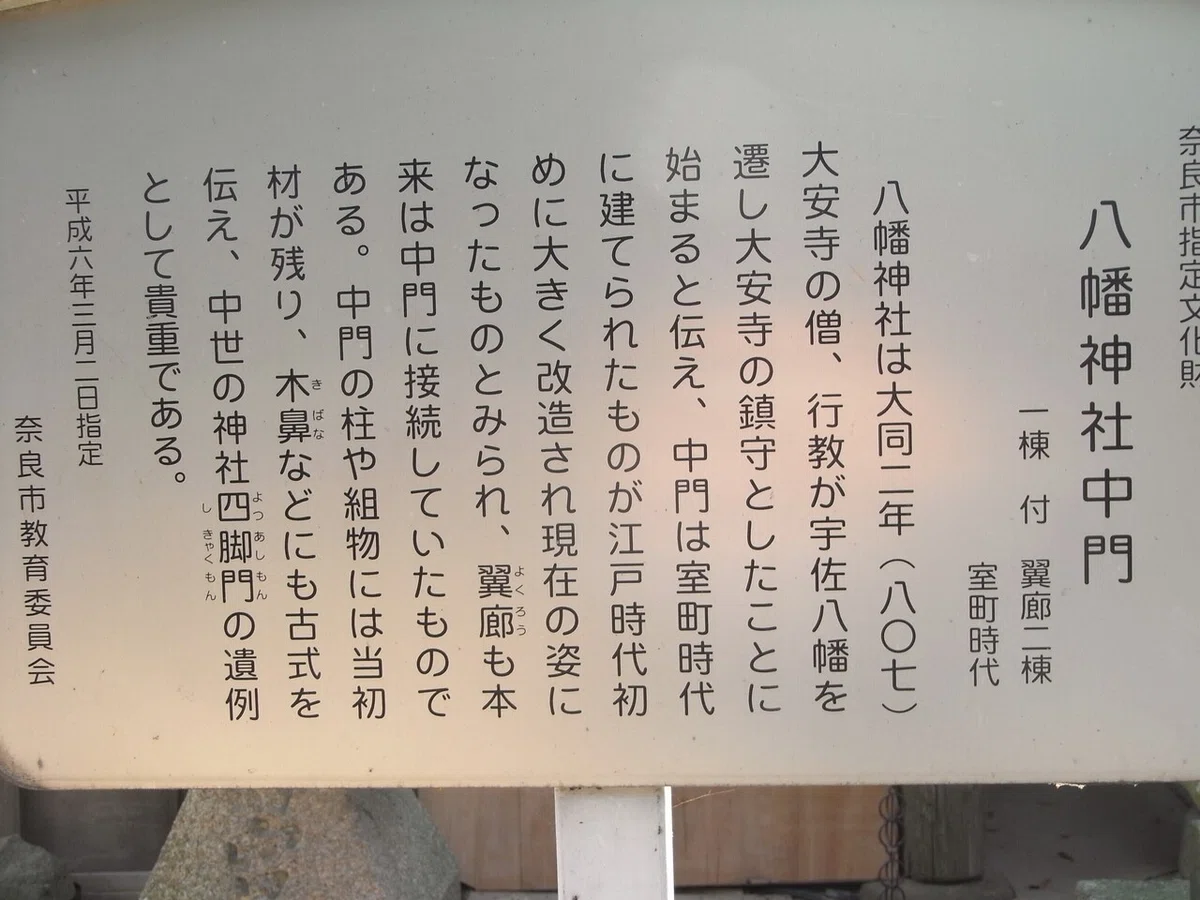 奈良市指定文化財
八幡神社中門
一棟 付 翼廊二棟
室町時代
八幡神社は大同二年（八〇七）
大安寺の僧、行教が宇佐八幡を
遷し大安寺の鎮守としたことに
始まると伝え、中門は室町時代
に建てられたものが江戸時代初
めに大きく改造され現在の姿に
なったものとみられ、翼廊も本
よくろう
来は中門に接続していたもので
ある。中門の柱や組物には当初
材が残り、木鼻などにも古式を
きばな
伝え、中世の神社四脚門の遺例
よつあしもん
しきゃくもん
として貴重である。
平成六年三月二日指定
奈良市教育委員会